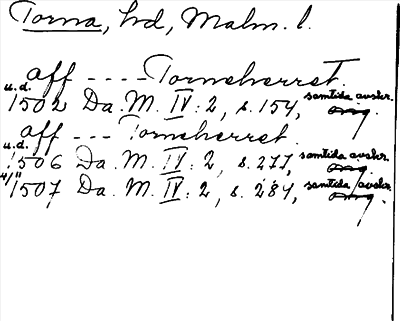 Torna, hd, Malm. l.
aff ---- Torneherret.
u.d. 1502 Da. M. IV: 2, s. 154, samtida avskr.
aff --- Torneherret.
u.d. 1506 Da. M. IV: 2, s. 277, samtida avskr.
4/11 1507 Da. M. IV: 2, s. 284, samtida avskr.